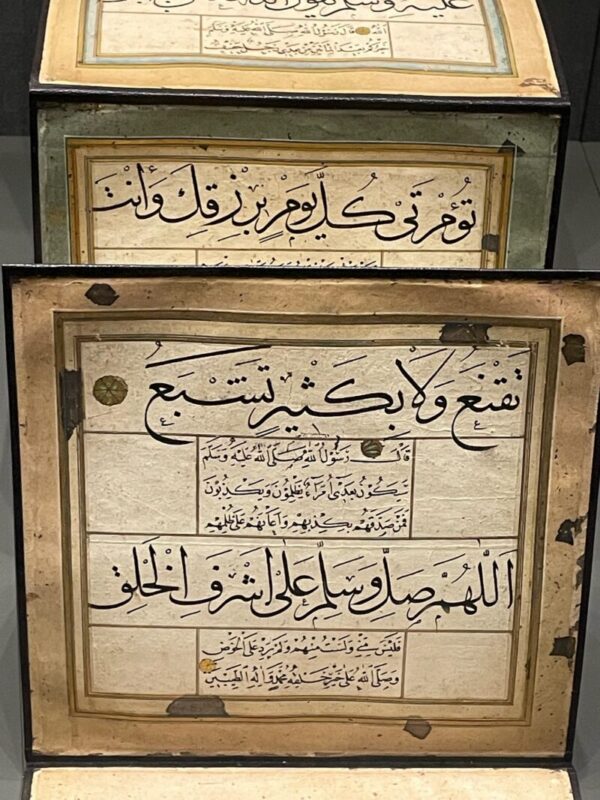 عليه وسلم يقول
قال رسول الله صلى الله عليه وسلم
تؤتى كل يوم برزقك وأنت
تقنع ولا بكثير تشبع
قال رسول الله صلى الله عليه وسلم
سيكون بعدي أمراء يظلمون ويكذبون
فمن صدقهم بكذبهم وأعانهم على ظلمهم
اللهم صل وسلم على أشرف الخلق
فليس مني ولست منهم ولم يرد على الحوض
وصلى الله على خير خلقه محمد وآله الطيبين